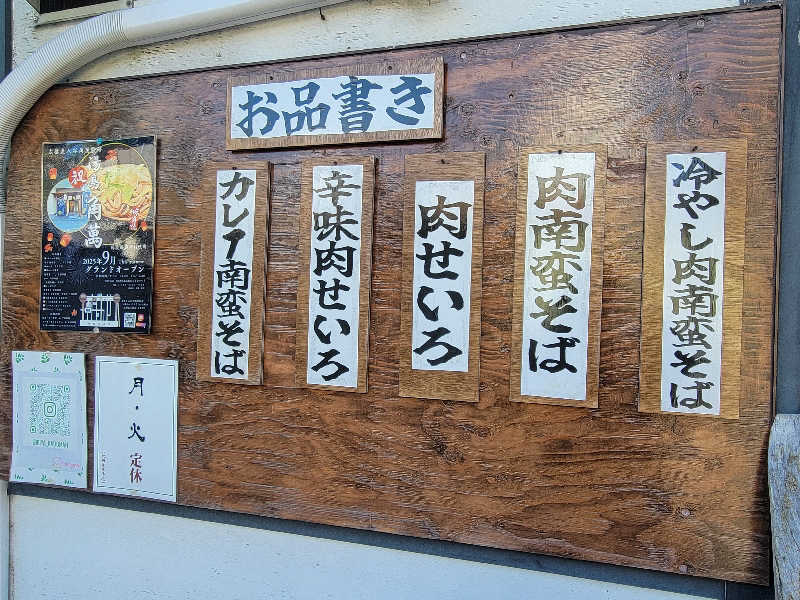 お品書き
冷やし肉南蛮そば
肉南蛮そば
肉せいろ
辛味肉せいろ
カレー南蛮そば
祝
角萬
2025年9月
グランドオープン
月・火
定休